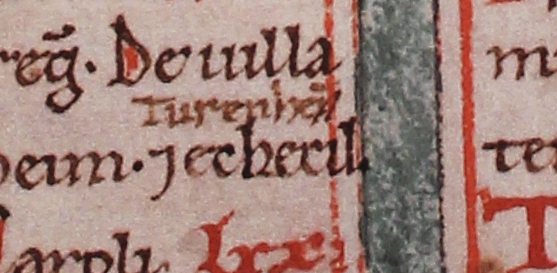 reg̃. De uilla
Turenheī
heim. ⁊ echeril.
aroli lxxi
m
te
T